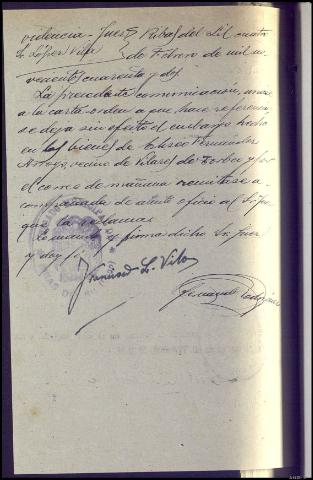 videncia - Juez } Ribas del Sil cuatro
Sr López Vila } de Febrero de mil no-
vecientos cuarenta y dos
La precedente comunicación, únase
a la carta-orden a que hace referencia
se deja sin efecto el embargo hecho
en los bienes de Eliseo Fernández
Arroyo, vecino de Vilares de Torbeo y por
el correo de mañana remítase a-
compañada de atento oficio al Sr Juez
que la
lo mandó y firma dicho Sr Juez
y doy fe.
Francisco L. Vila